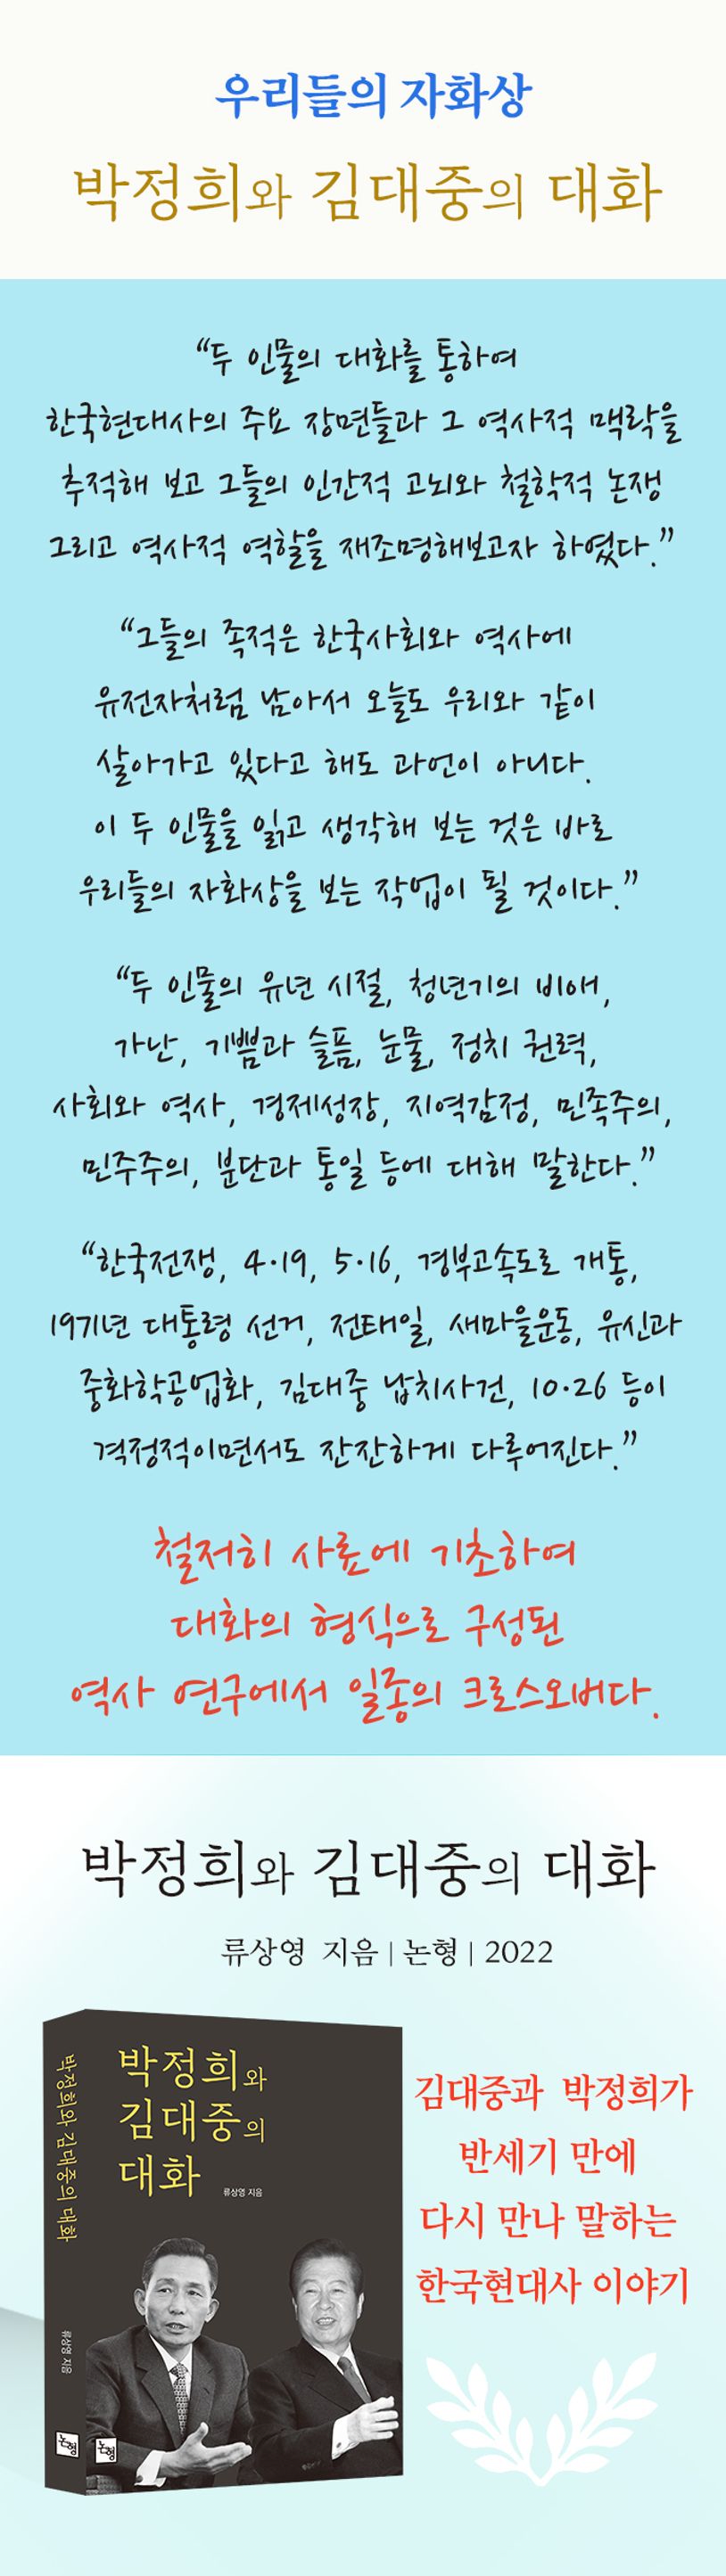 우리들의 자화상
박정희와 김대중의 대화
“두 인물의 대화를 통하여
한국현대사의 주요 장면들과 그 역사적 맥락을
추적해 보고 그들의 인간적 고뇌와 철학적 논쟁
그리고 역사적 역할을 재조명해보고자 하였다.”
“그들의 족적은 한국사회와 역사에
유전자처럼 남아서 오늘도 우리와 같이
살아가고 있다고 해도 과언이 아니다.
이 두 인물을 읽고 생각해 보는 것은 바로
우리들의 자화상을 보는 작업이 될 것이다.”
“두 인물의 유년 시절, 청년기의 비애,
가난, 기쁨과 슬픔, 눈물, 정치 권력,
사회와 역사, 경제성장, 지역감정, 민족주의,
민주주의, 분단과 통일 등에 대해 말한다.”
“한국전쟁, 4·19, 5·16, 경부고속도로 개통,
1971년 대통령 선거, 전태일, 새마을운동, 유신과
중화학공업화, 김대중 납치사건, 10·26 등이
격정적이면서도 잔잔하게 다루어진다.”
철저히 사료에 기초하여
대화의 형식으로 구성된
역사 연구에서 일종의 크로스오버다.
박정희와 김대중의 대화
류상영 지음 | 논형 | 2022
박정희와 김대중의 대화
류상영 지음
논형
박정희와
김대중의
대화
류상영 지음
논형
김대중과 박정희가
반세기 만에
다시 만나 말하는
한국현대사 이야기